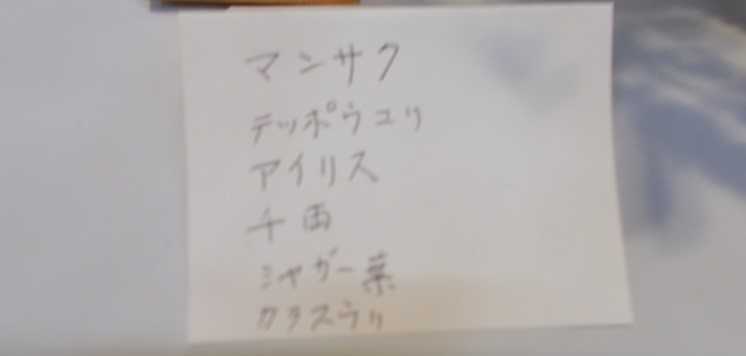 マンサク
テッポウユリ
アイリス
千両
シャガー葉
カラスウリ